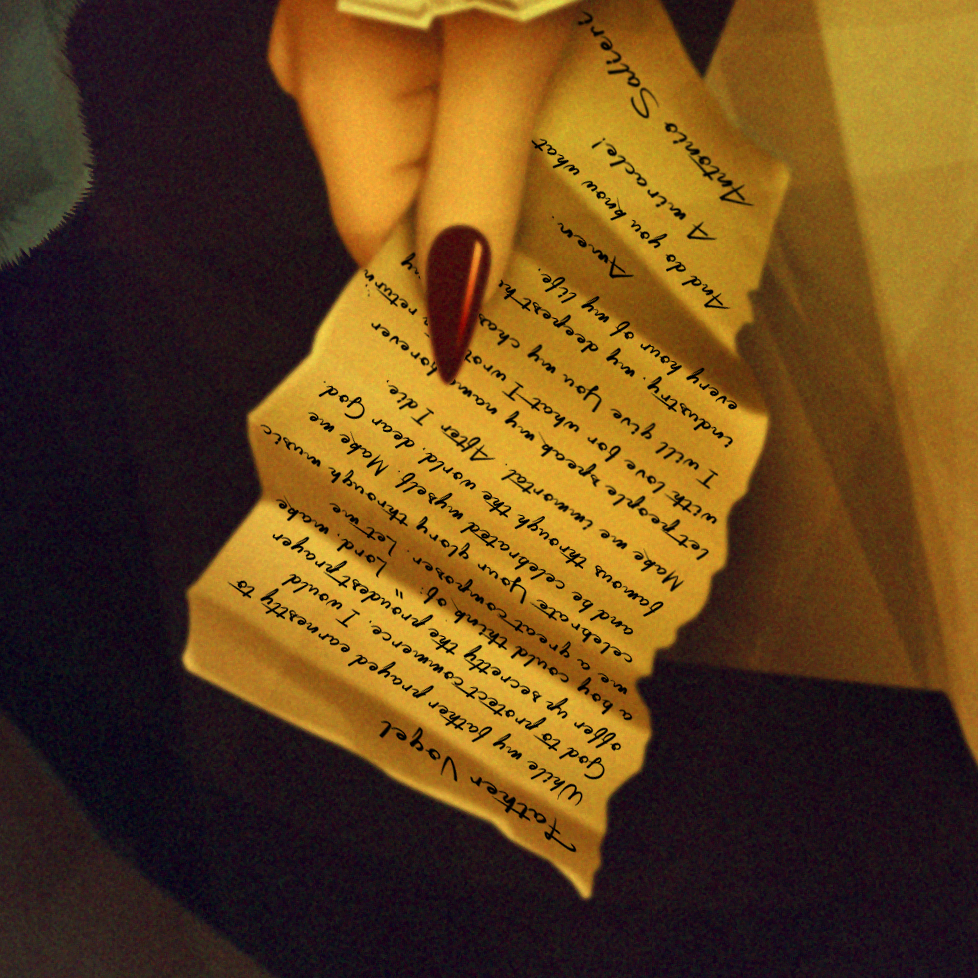 Father Vogel
While my father prayed earnestly to
God to protect commerce, I would
offer up secretly the proudest prayer
a boy could think of: "Lord, make
me a great composer. Let me
celebrate Your glory through music
and be celebrated myself. Make me
famous through the world, dear God.
Make me immortal. After I die,
let people speak my name forever
with love for what I wrote return
I will give You my my
industry, my deepest
every hour of my life.
Amen.
And do you know what
A miracle!
Antonio Salieri